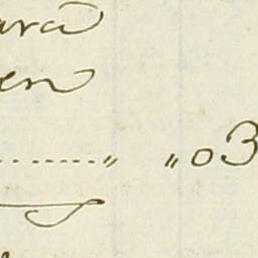 ara
en
........ „ „ 03